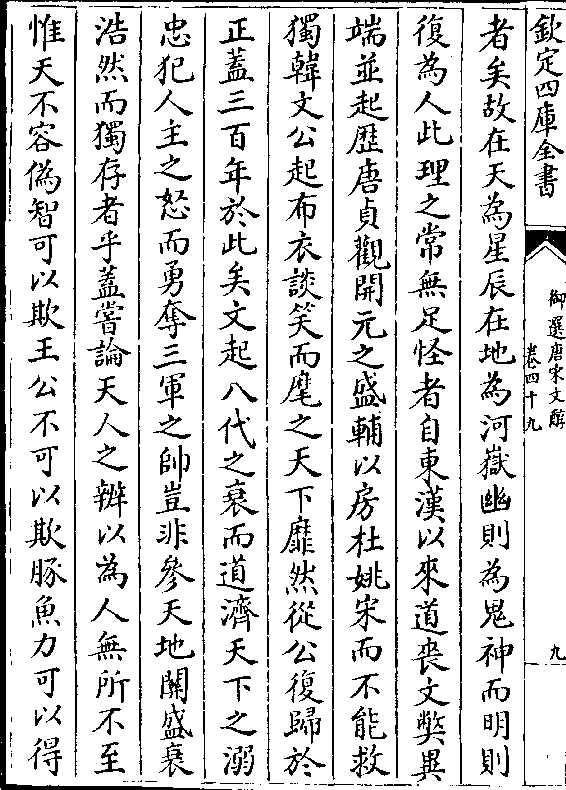 欽定四庫全書
御選唐宋文醇
卷四十九
九
者矣故在天為星辰在地為河嶽幽則為鬼神而明則
復為人此理之常無足怪者自東漢以來道喪文獘異
端並起歴唐貞觀開元之盛輔以房杜姚宋而不能救
獨韓文公起布衣談笑而麾之天下靡然從公復歸於
正葢三百年於此矣文起八代之衰而道濟天下之溺
忠犯人主之怒而勇奪三軍之帥豈非參天地關盛衰
浩然而獨存者乎葢嘗論天人之辨以為人無所不至
惟天不容偽智可以欺王公不可以欺豚魚力可以得